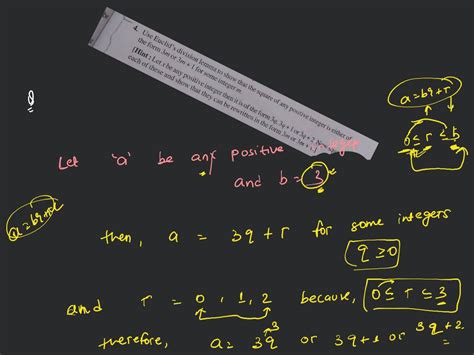 4. Use Euclid's division lemma to show that the square of any positive integer is either of
the form 3m or 3m + 1 for some integer m.
[Hint : Let x be any positive integer then it is of the form 3q, 3q + 1 or 3q + 2. Now square
each of these and show that they can be rewritten in the form 3m or 3m + 1.]
a = bq + r
0 ≤ r ≤ b
Let 'a' be any positive
and b = 3
a = bq + r
then, a = 3q + r for some integers
q ≥ 0
and r = 0, 1, 2 because, 0 ≤ r ≤ 3
therefore, a = 3q or 3q+1 or 3q+2